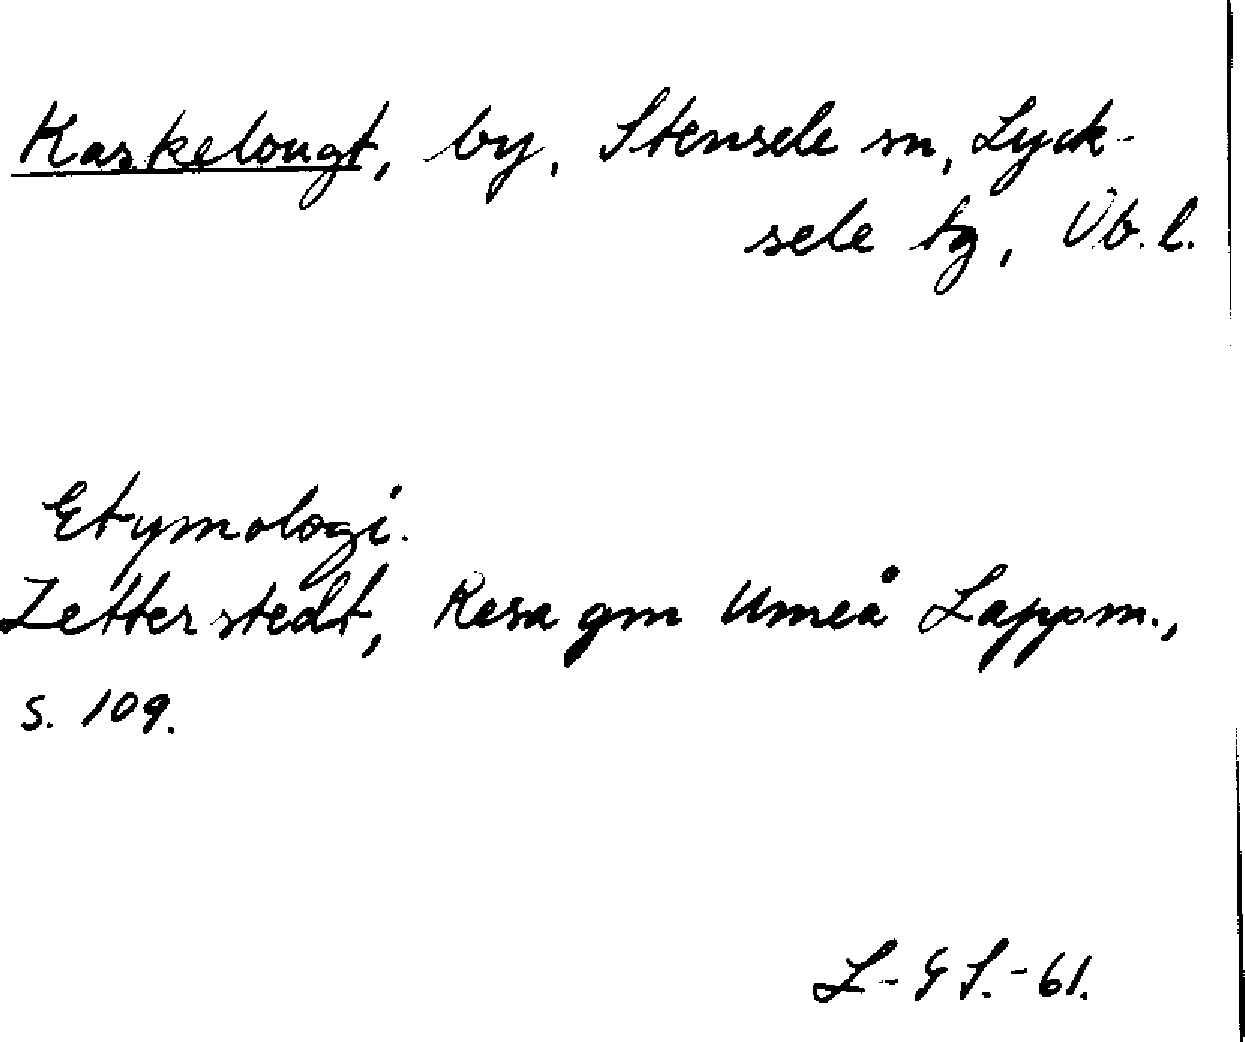 Kaskelougt, by, Stensele sn, Lyck-
sele tg, Vb. l.
Etymologi.
Zetterstedt, Resa gm Umeå Lappm.,
s. 109.
L-G S.-61.